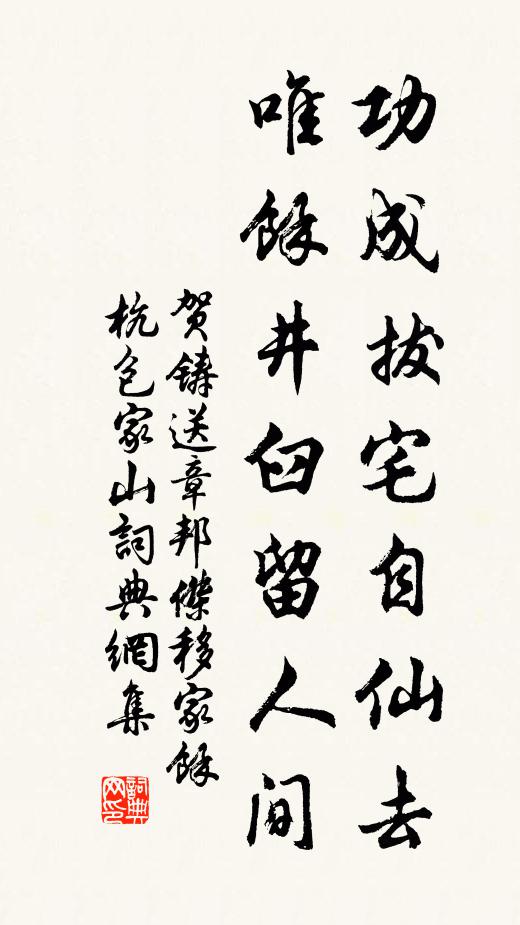 功成拔宅自仙去
唯餘井臼留人间
贺鑄送章邦傑移家餘
杭邑家山詞典網集
詞典
网印